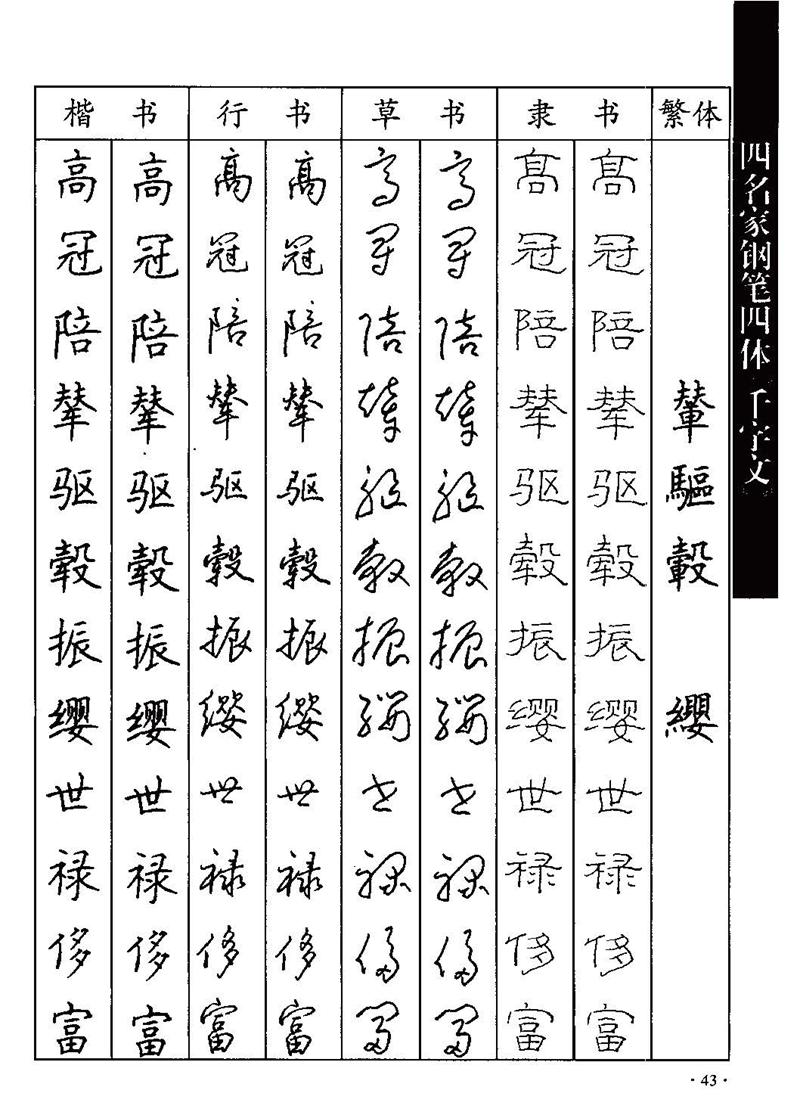 楷 书 行 书 草 书 隶 书 繁体
高 高 高 高 高 高 高 高
冠 冠 冠 冠 冠 冠 冠 冠
陪 陪 陪 陪 陪 陪 陪 陪
辇 辇 辇 辇 辇 辇 辇 辇 輦
驱 驱 驱 驱 驱 驱 驱 驱 驅
毂 毂 毂 毂 毂 毂 毂 毂 轂
振 振 振 振 振 振 振 振
缨 缨 缨 缨 缨 缨 缨 缨 纓
世 世 世 世 世 世 世 世
禄 禄 禄 禄 禄 禄 禄 禄
侈 侈 侈 侈 侈 侈 侈 侈
富 富 富 富 富 富 富 富
四名家钢笔四体《千字文》
·43·